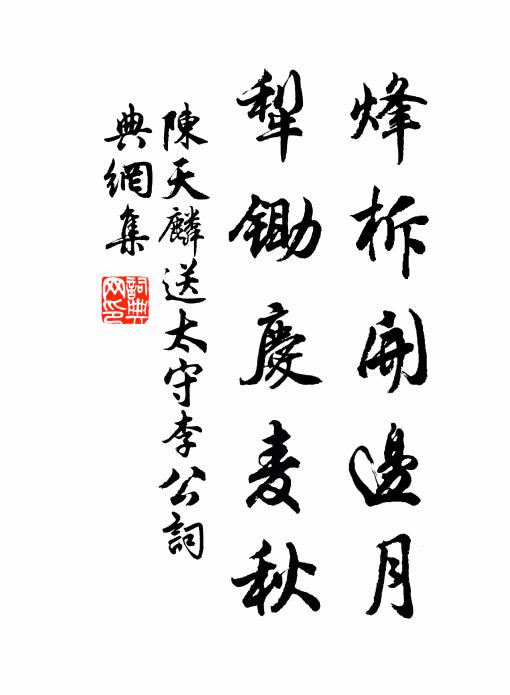 烽柝開邊月
犁鋤慶麦秋
陳天麟送太守李公詞
典網集
詞典
网印